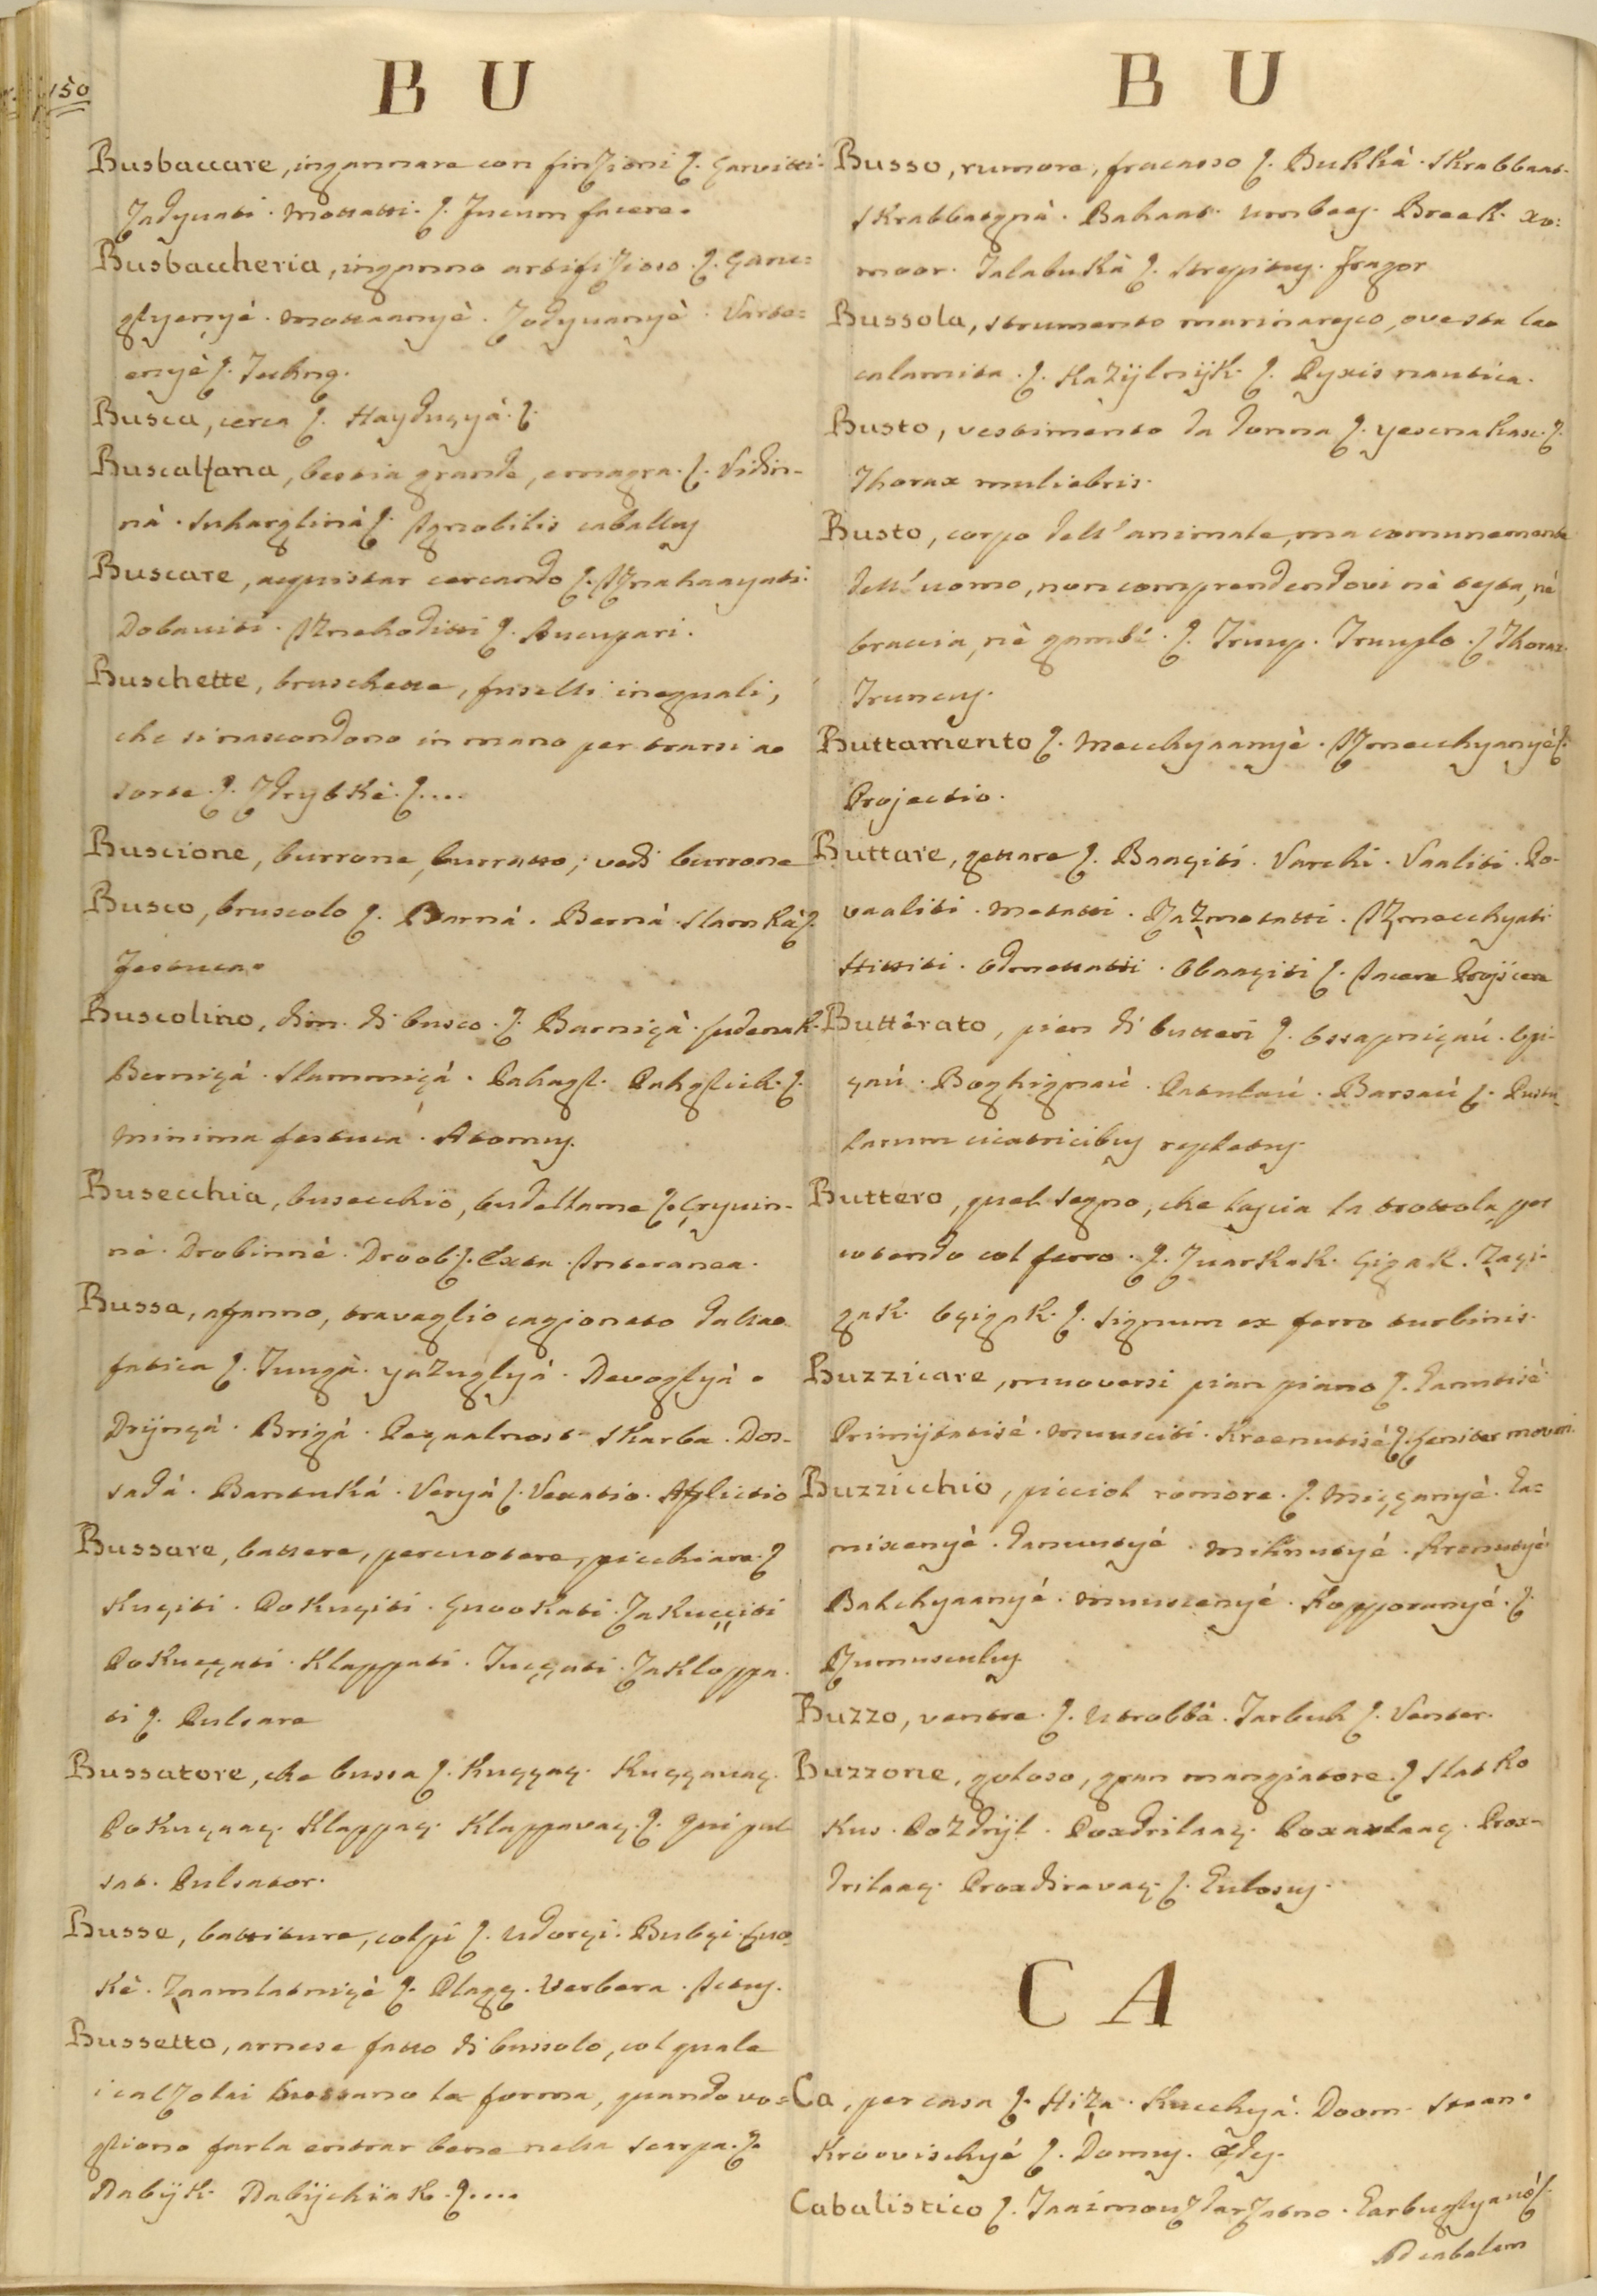 150
B U
Busbaccare, ingannare con finzioni ſ. Garvitti.
Zadyuati. Mottatti. ſ. Fucum facere.
Busbaccheria, inganno artifizioso. ſ.
Mottaanyè. Zodyuanyè. Varte=
enyè ſ. Techng.
Busca, cerca ſ. Haydugyà. ſ.
Buscalfana, bestia grande, emagra. ſ. Vidin-
nà. Suharglinà ſ. Ignobilis caballus
Buscare, acquistar cercando ſ. Iznahaayati.
Dobaviti. Iznahoditti ſ. Aucupari.
Buschette, bruschette, fuselli ineguali,
che si nascondono in mano per trarsi a
sorte. ſ. Zdrytkè. ſ....
Buscione, burrone, burratto; vedi burrone
Busco, bruscolo ſ. Barnà. Bernà. Slamkà ſ.
Festuca.
Buscolino, dim. di busco. ſ. Barniçà. Sudenak.
Berniçà. Slamniçà. Pahagl. Pahglich. ſ.
Minima festuca. Atomus.
Busecchia, busecchio, budellame ſ. Çryuin-
nè. Drobinnè. Droob ſ. Exta. Interanea.
Bussa, afanno, travaglio cagionato dalla
fatica ſ. Tuugà. yazuglyà. Devoglyà.
Drÿnçà. Brigà. Peçaalnost. Skarba. Dos-
sadà. Bantukà. Veryà ſ. Vexatio. Aflictio
Bussare, battere, percuotere, picchiare. ſ
Kuçiti. Pokuçiti. Guookati. Zakuççiti
Pokuççati. Klappati. Tucçati. Zakloppa.
ti ſ. Pulsare
Bussatore, che bussa ſ. Kuççaç. Kuççavaç.
Pokuçaaç. Klappaç. Klappavaç. ſ. Qui pul
sat. Pulsator.
Busse, battiture, colpi ſ. Udorçi. Bubçi.
kè. Zaamlatniçè ſ. Plagg. Verbera. Ictus.
Bussetto, arnese fatto di bussolo, col quale
i calzolai bussano la forma, quando vo=
gliono farla entrar bene nella scarpa. ſ.
Dabÿk. Dabÿchïak. ſ....
B U
Busso, rumore, fracasso ſ. Bukkà. Skrabbaat.
Skrabbatgnà. Bahaat. Umbeg. Breek. xo:
moor. Talabukà ſ. Strepitus. Fragor
Bussola, strumento marinaresco, ove sta la
calamita. ſ. Kazÿlnÿk. ſ. Pyxis nautica.
Busto, vestimento da donna ſ. yesenakasc. ſ.
Thorax muliebris.
Busto, corpo dell' animale, ma comunemente
dell' uomo, non comprendendovi nè testa, nè
braccia, nè gambe. ſ. Truup. Truuplo. ſ Thorax.
Truncus.
Buttamento ſ. Mecchyaanyè. Izmecchyanyè ſ.
Projectio.
Buttare, gettare ſ. Baaçiti. Varchi. Vaaliti. Po-
vaaliti. Metatti. Razmetatti. Izmecchyati.
Hittiti. Odmettatti. Obaaçiti ſ. Jacere. Projicere
Butterato, pien di butteri ſ. Ossapniçaù.
Boghignaù. Patulaù. Barsaù ſ. Pustu-
larum cicatricibus repletus.
Buttero, quel segno, che lascia la trottola per
cotendo col ferro. ſ. Zuarkok. Gigak. Zagi-
gak. Ogigak. ſ. Signum ex ferro turbinis.
Buzzicare, muoversi pian piano ſ.
Primÿtatisè. Muusciti. Kreenutisè ſ. Leniter moveri.
Buzzicchio, picciol romore. ſ. Micçanyè. Ga=
mixenyè. Ganuutyè. Miknutyè. Krenutyè.
Bahchyaanyè. Muuscenyè. Kopporanyè. ſ.
Rumusculus
Buzzo, ventre. ſ. Utrobbà. Tarbuh ſ. Venter.
Buzzone, goloso, gran mangiatore. ſ Slatko
kus. Pozdrÿl. Poxdrilaaç. Poxartaaç. Prox-
drilaaç. Proxdiravaç. ſ. Gulosus.
C A
Ca, per casa ſ. Hiza. Kucchyà. Doom. Staan.
Kroovischyè ſ. Domus. Ædes.
Cabalistico ſ. Garbuglyanò ſ.
Ad cabalam